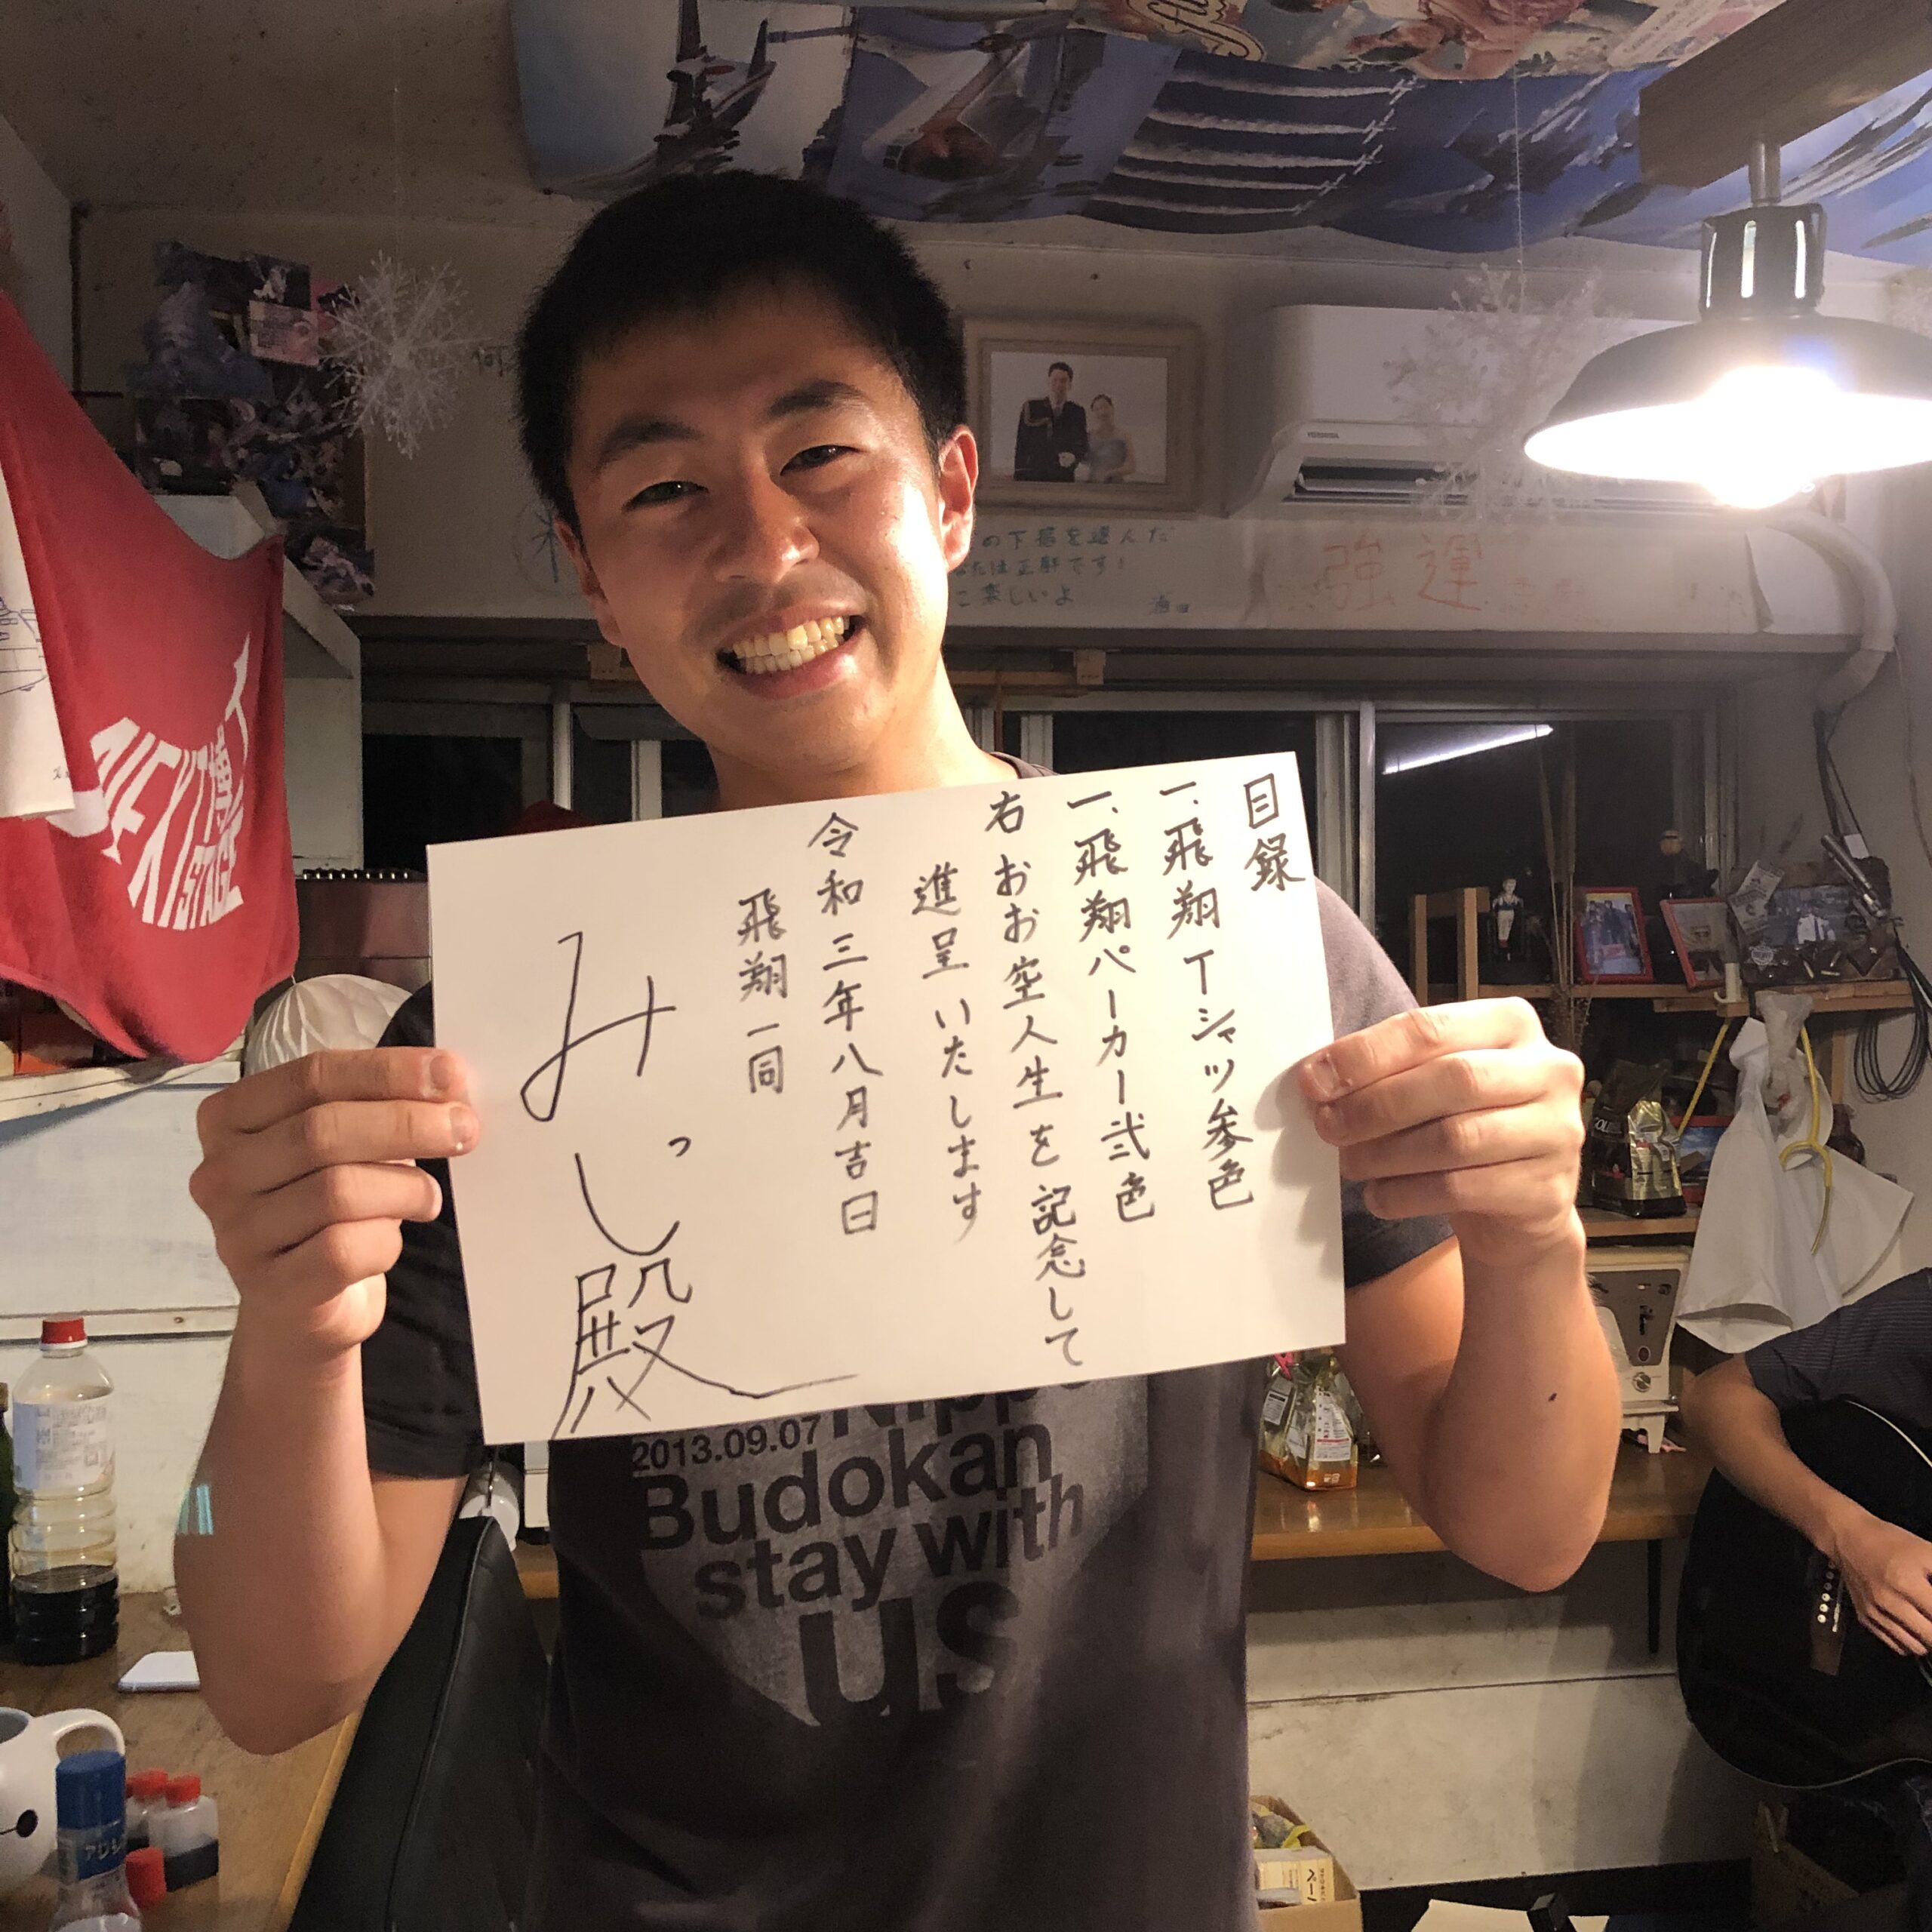 目録
一、飛翔Tシャツ参色
一、飛翔パーカー弐色
右 おお空人生を記念して
進呈いたします
令和三年八月吉日
飛翔一同
みっし殿
2013.09.07
Budokan
stay with
us
の下宿を選んだ
正解です!
楽しいよ
強運
NEXT
STAGE
TOSHIBA